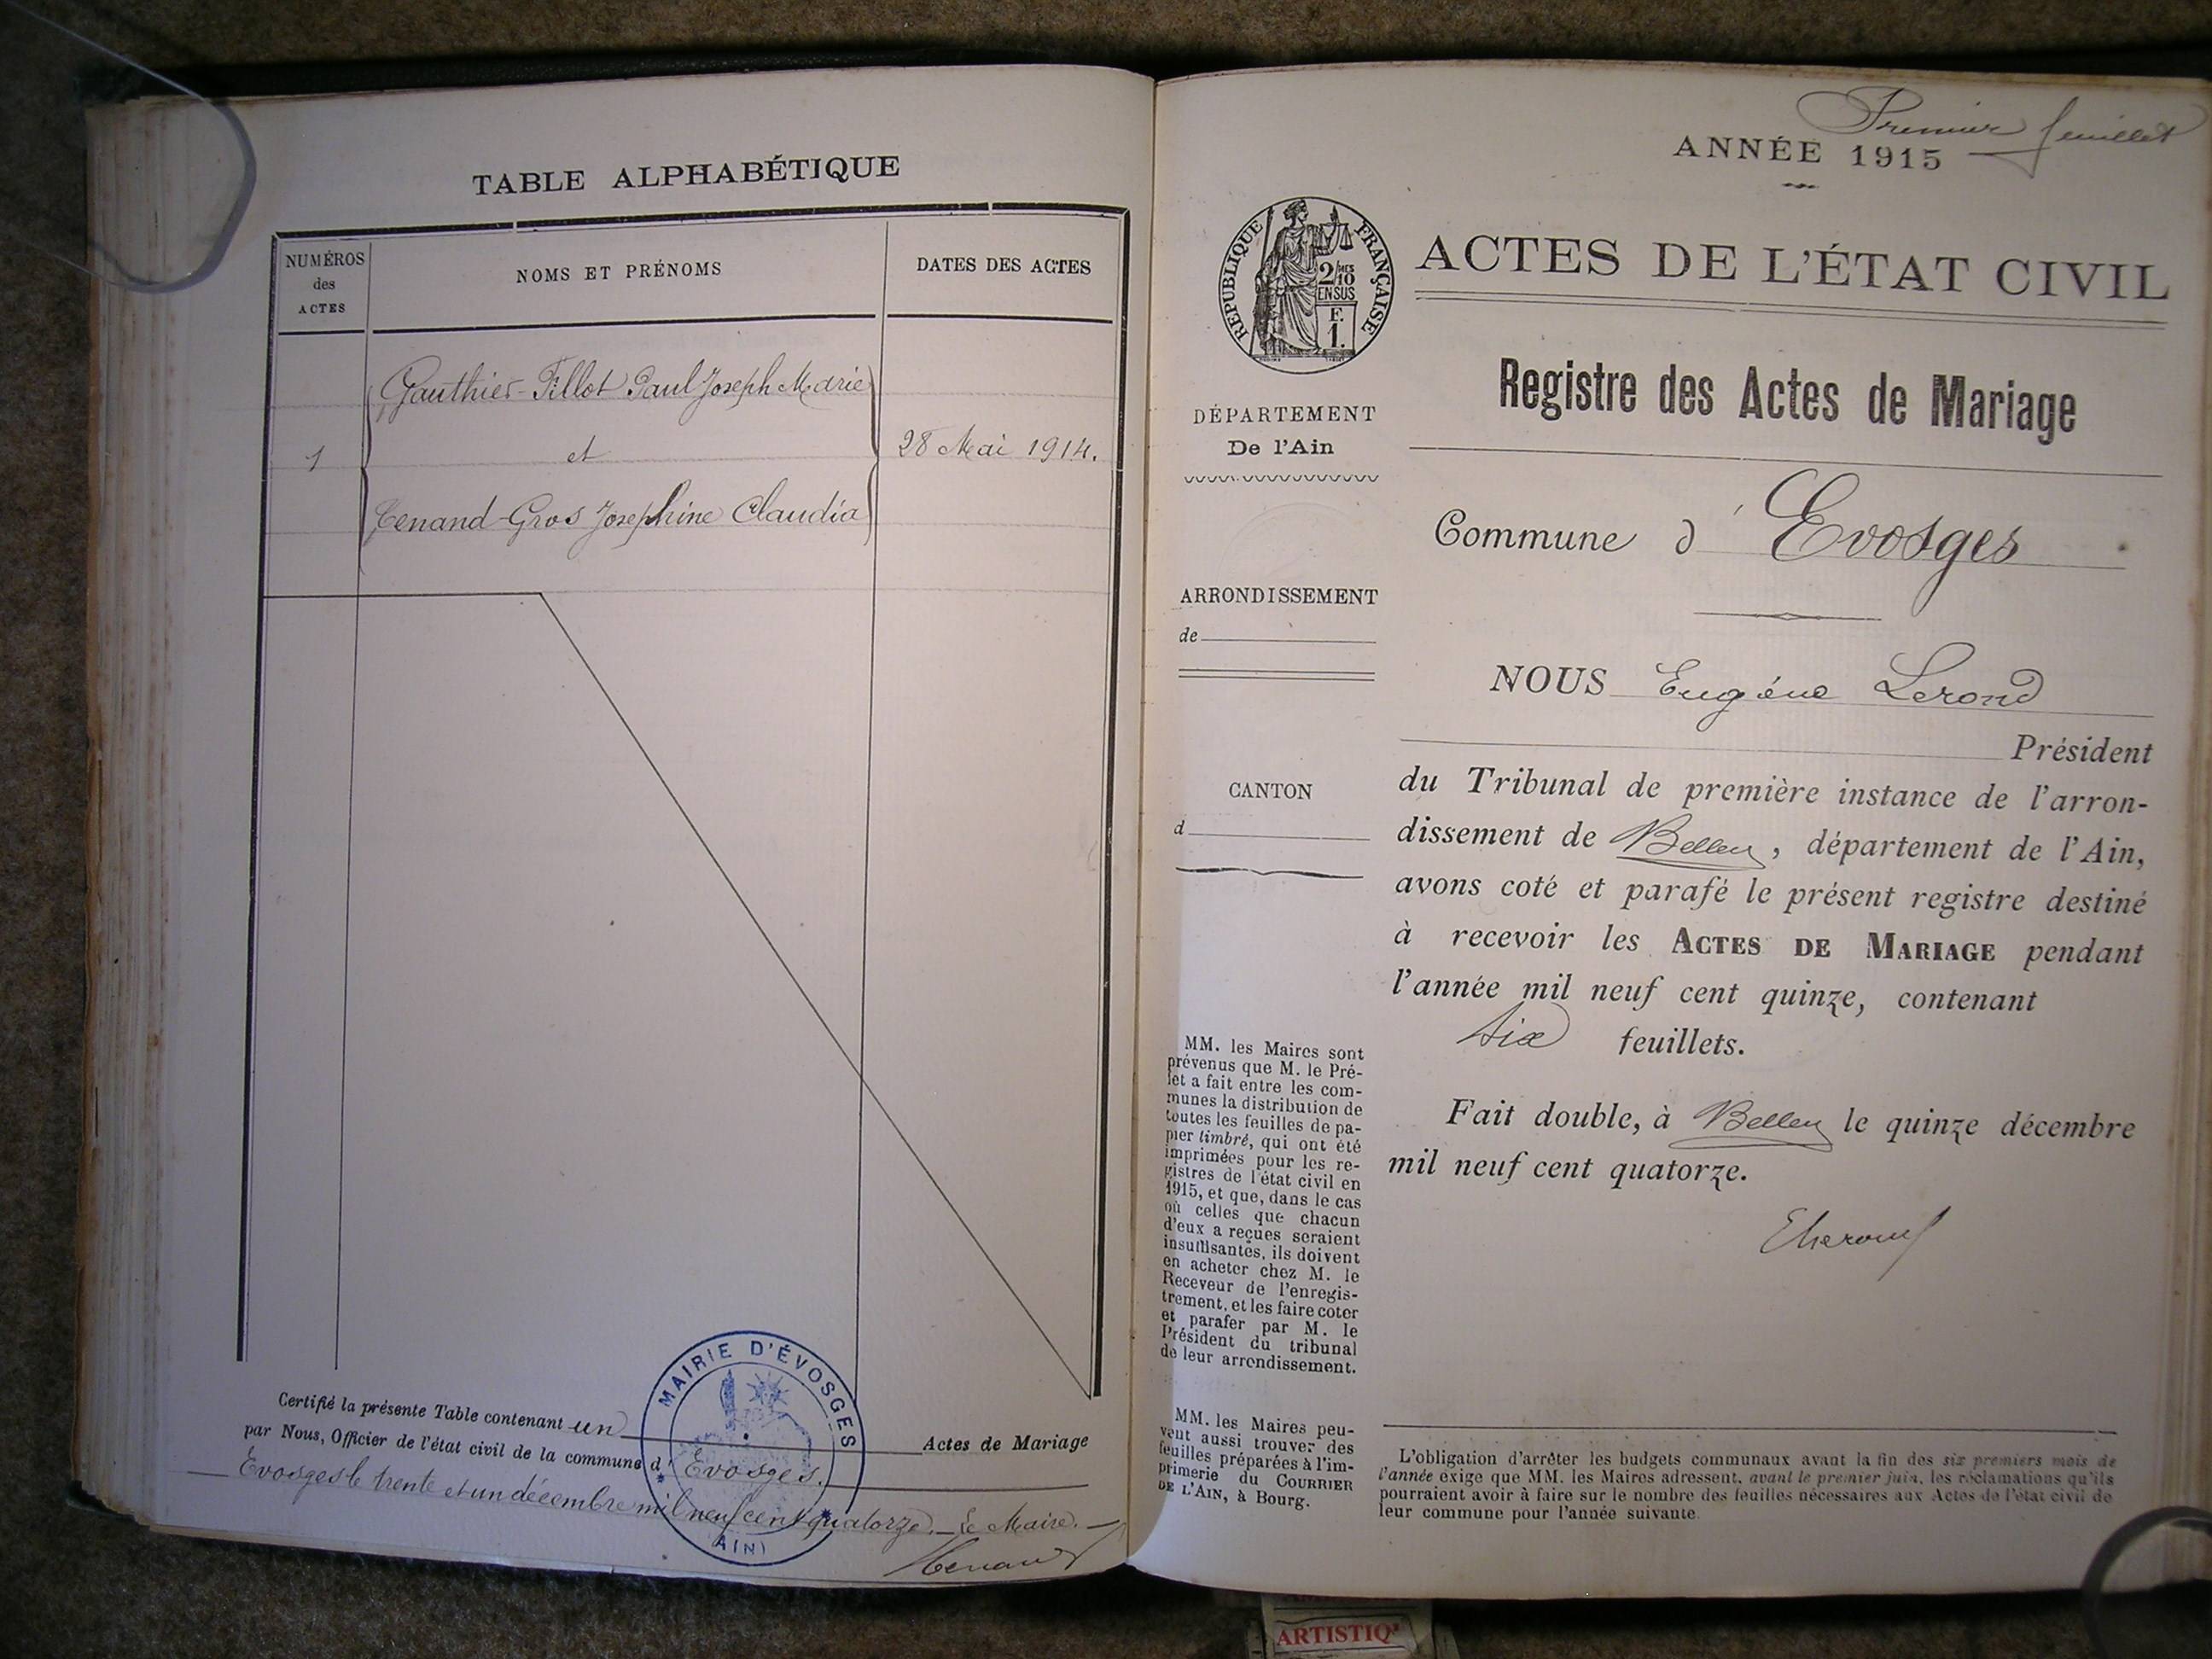 TABLE ALPHABÉTIQUE
NUMÉROS
des
ACTES
NOMS ET PRÉNOMS
DATES DES ACTES
Gauthier-Tillot Paul Joseph Marie
1
et
28 Mai 1914.
Tenand-Gros Josephine Claudia
Certifié la présente Table contenant un
Actes de Mariage
par Nous, Officier de l'état civil de la commune d' Evosges.
Evosges le trente et un décembre mil neuf cent quatorze. — Le Maire. —
Tenand
MAIRIE D'ÉVOSGES
(AIN)
Premier feuillet
ANNÉE 1915
RÉPUBLIQUE FRANÇAISE
2/10MES
EN SUS
F.
1.
ACTES DE L'ÉTAT CIVIL
Registre des Actes de Mariage
DÉPARTEMENT
De l'Ain
Commune d' Evosges
ARRONDISSEMENT
de
CANTON
d
NOUS Eugéne Lerond
Président
du Tribunal de première instance de l'arron-
dissement de Belley, département de l'Ain,
avons coté et parafé le présent registre destiné
à recevoir les ACTES DE MARIAGE pendant
l'année mil neuf cent quinze, contenant
six feuillets.
Fait double, à Belley le quinze décembre
mil neuf cent quatorze.
MM. les Maires sont
prévenus que M. le Pré-
fet a fait entre les com-
munes la distribution de
toutes les feuilles de pa-
pier timbré, qui ont été
imprimées pour les re-
gistres de l'état civil en
1915, et que, dans le cas
où celles que chacun
d'eux a reçues seraient
insuffisantes, ils doivent
en acheter chez M. le
Receveur de l'enregis-
trement, et les faire coter
et parafer par M. le
Président du tribunal
de leur arrondissement.
MM. les Maires peu-
vent aussi trouver des
feuilles préparées à l'im-
primerie du COURRIER
DE L'AIN, à Bourg.
L'obligation d'arrêter les budgets communaux avant la fin des six premiers mois de
l'année exige que MM. les Maires adressent, avant le premier juin, les réclamations qu'ils
pourraient avoir à faire sur le nombre des feuilles nécessaires aux Actes de l'état civil de
leur commune pour l'année suivante.
ARTISTIQ